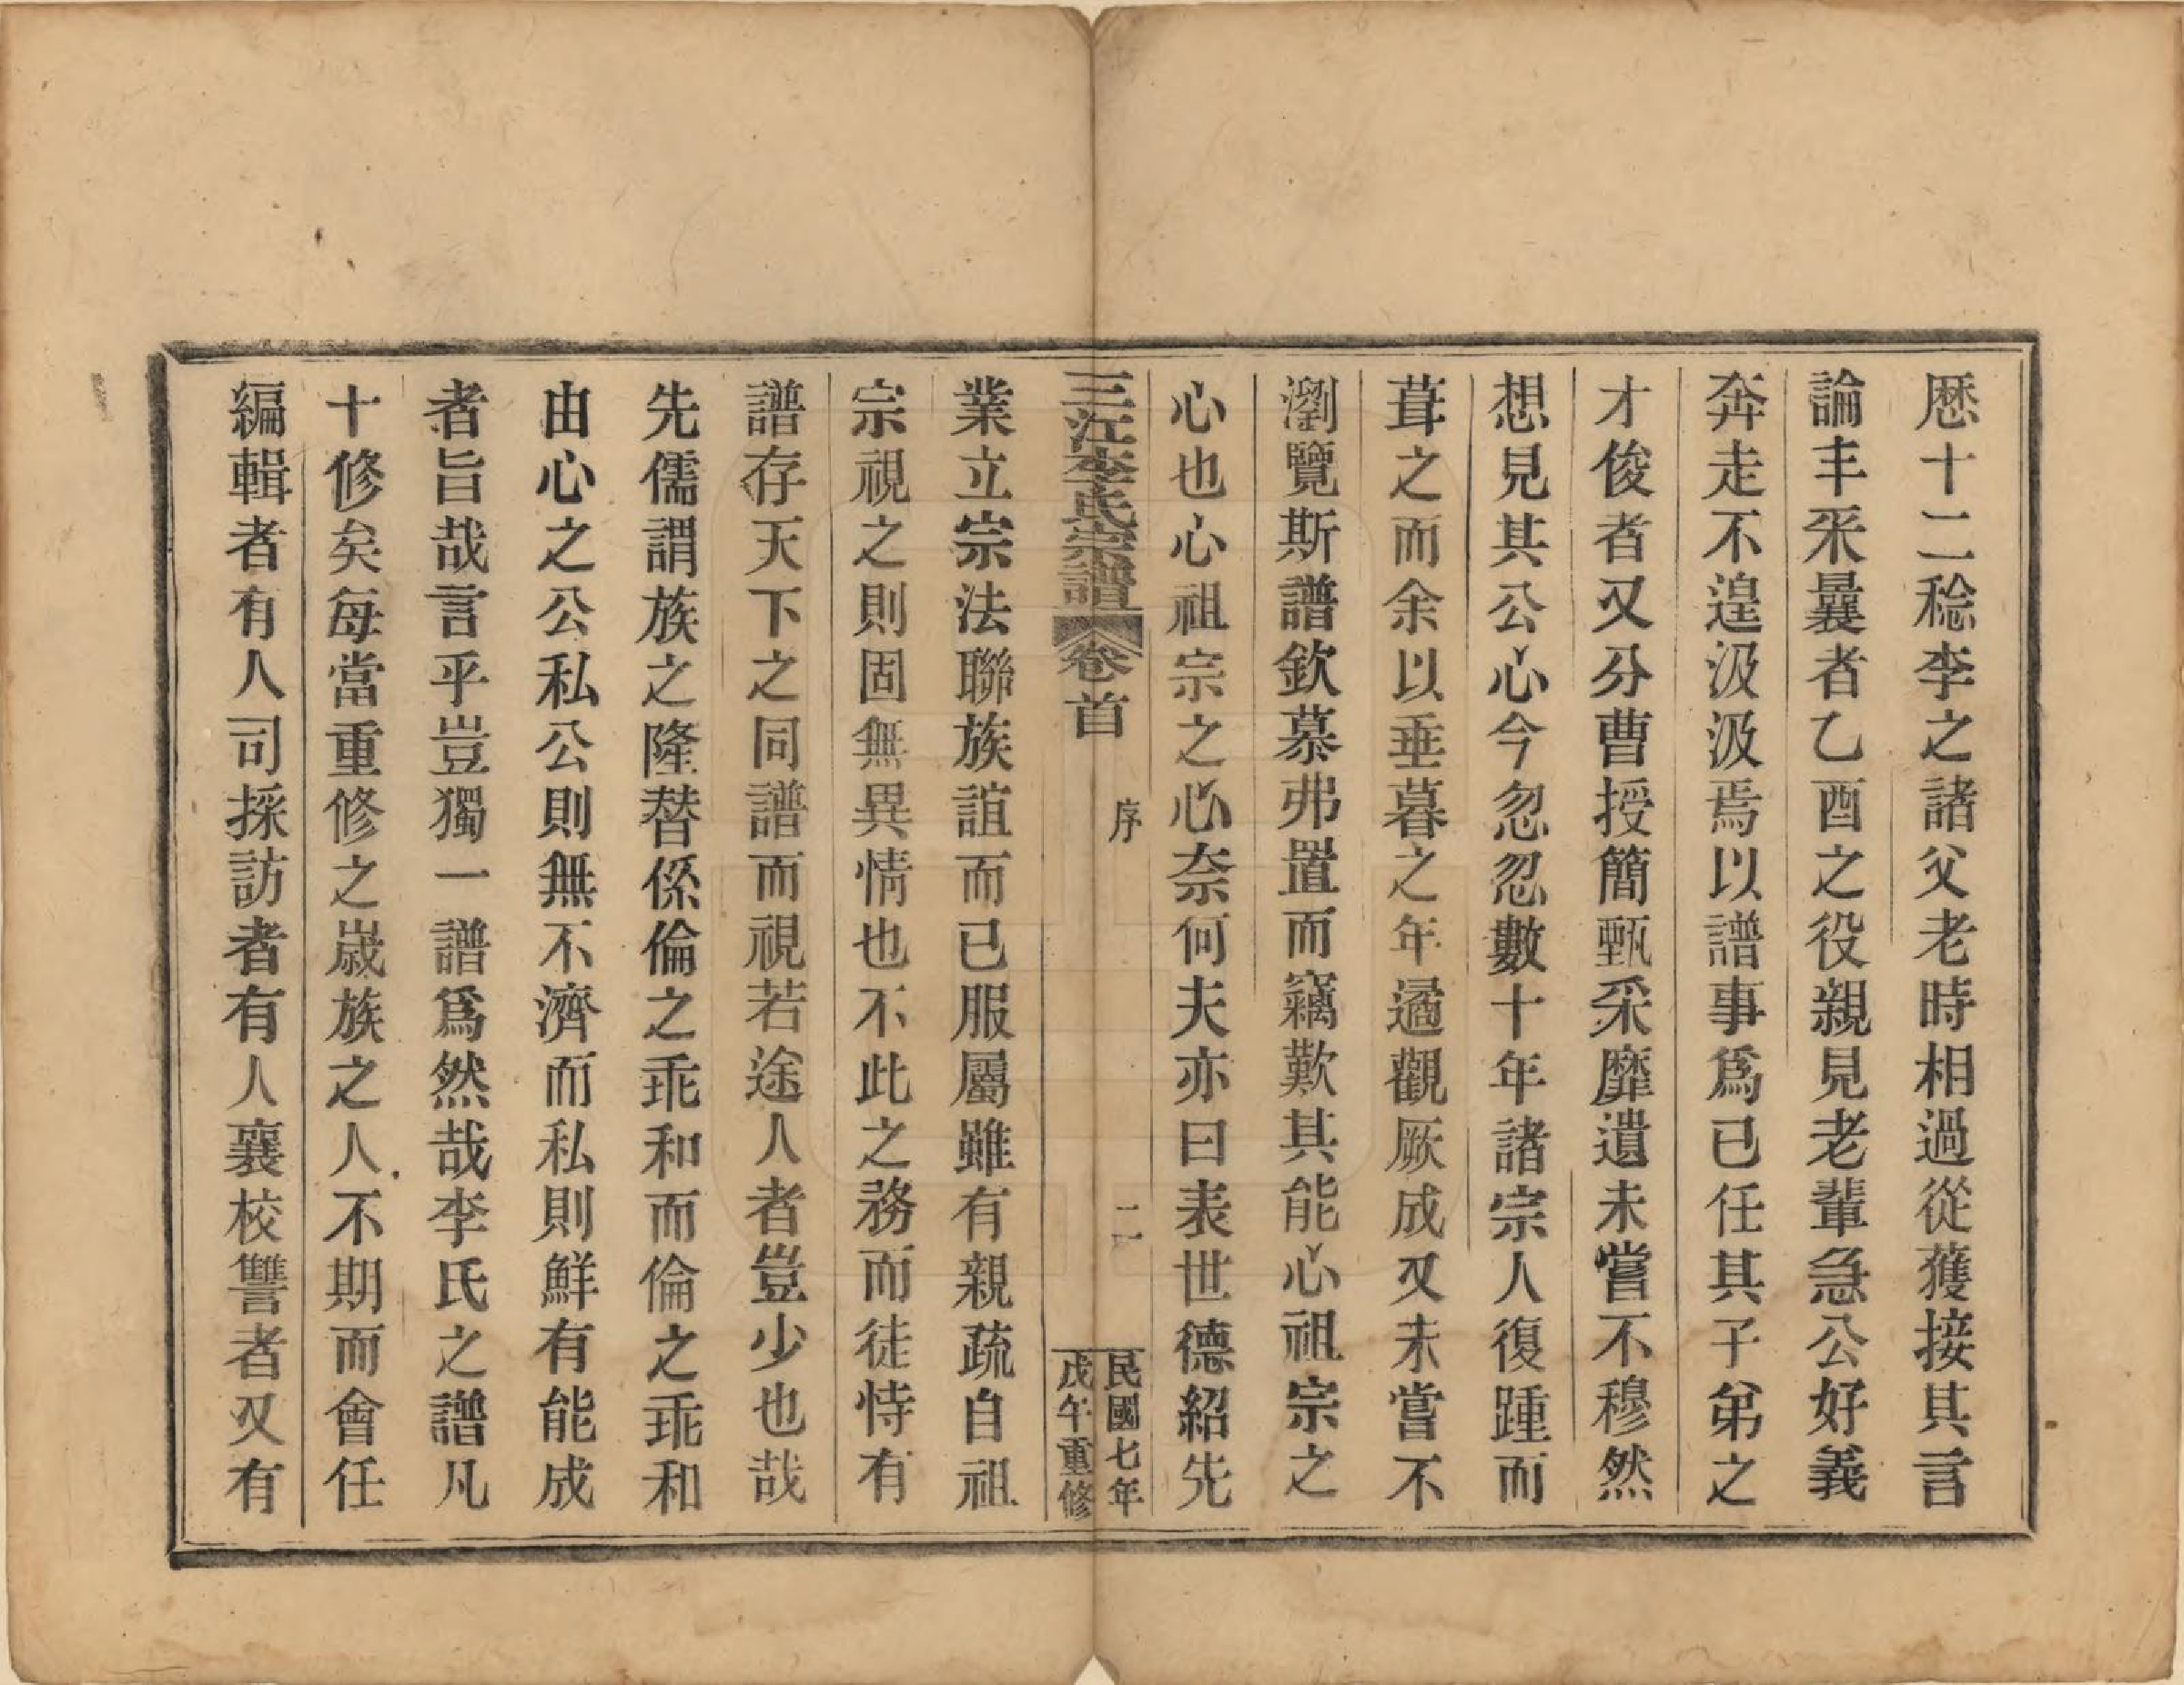 歷十二稔李之諸父老時相過從獲接其言
論丰采曩者乙酉之役親見老輩急公好義
奔走不遑汲汲焉以譜事爲己任其子弟之
才俊者又分曹授簡甄采靡遺未嘗不穆然
想見其公心今忽忽數十年諸宗人復踵而
葺之而余以垂暮之年遹觀厥成又未嘗不
瀏覽斯譜欽慕弗置而竊歎其能心祖宗之
心也心祖宗之心奈何夫亦曰表世德紹先
三江李氏宗譜 卷首
序
二
民國七年
戊午重修
業立宗法聯族誼而已服屬雖有親疏自祖
宗視之則固無異情也不此之務而徒恃有
譜存天下之同譜而視若途人者豈少也哉
先儒謂族之隆替係倫之乖和而倫之乖和
由心之公私公則無不濟而私則鮮有能成
者旨哉言乎豈獨一譜爲然哉李氏之譜凡
十修矣每當重修之歲族之人不期而會任
編輯者有人司採訪者有人襄校讐者又有